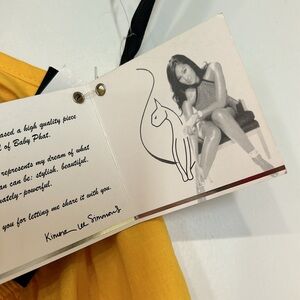 ased a high quality piece
of Baby Phat.
represents my dream of what
an can be: stylish, beautiful,
ately- powerful.
you for letting me share it with you.
Kimora Lee Simmons